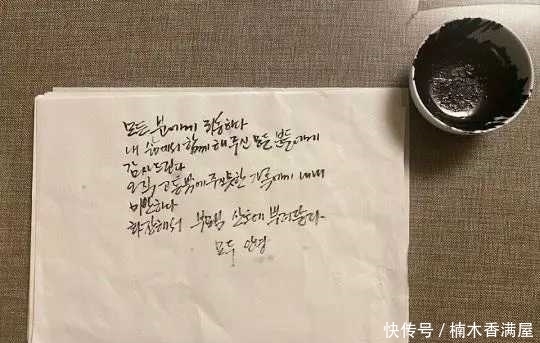 모든 분에게 죄송하다
내 삶에서 함께 해주신 모든 분들에게
감사드린다
오직 고통밖에 주지못한 가족에게 내내
미안하다
화장해서 부모님 산소에 뿌려달라
모두 안녕
快传号 / 楠木香满屋